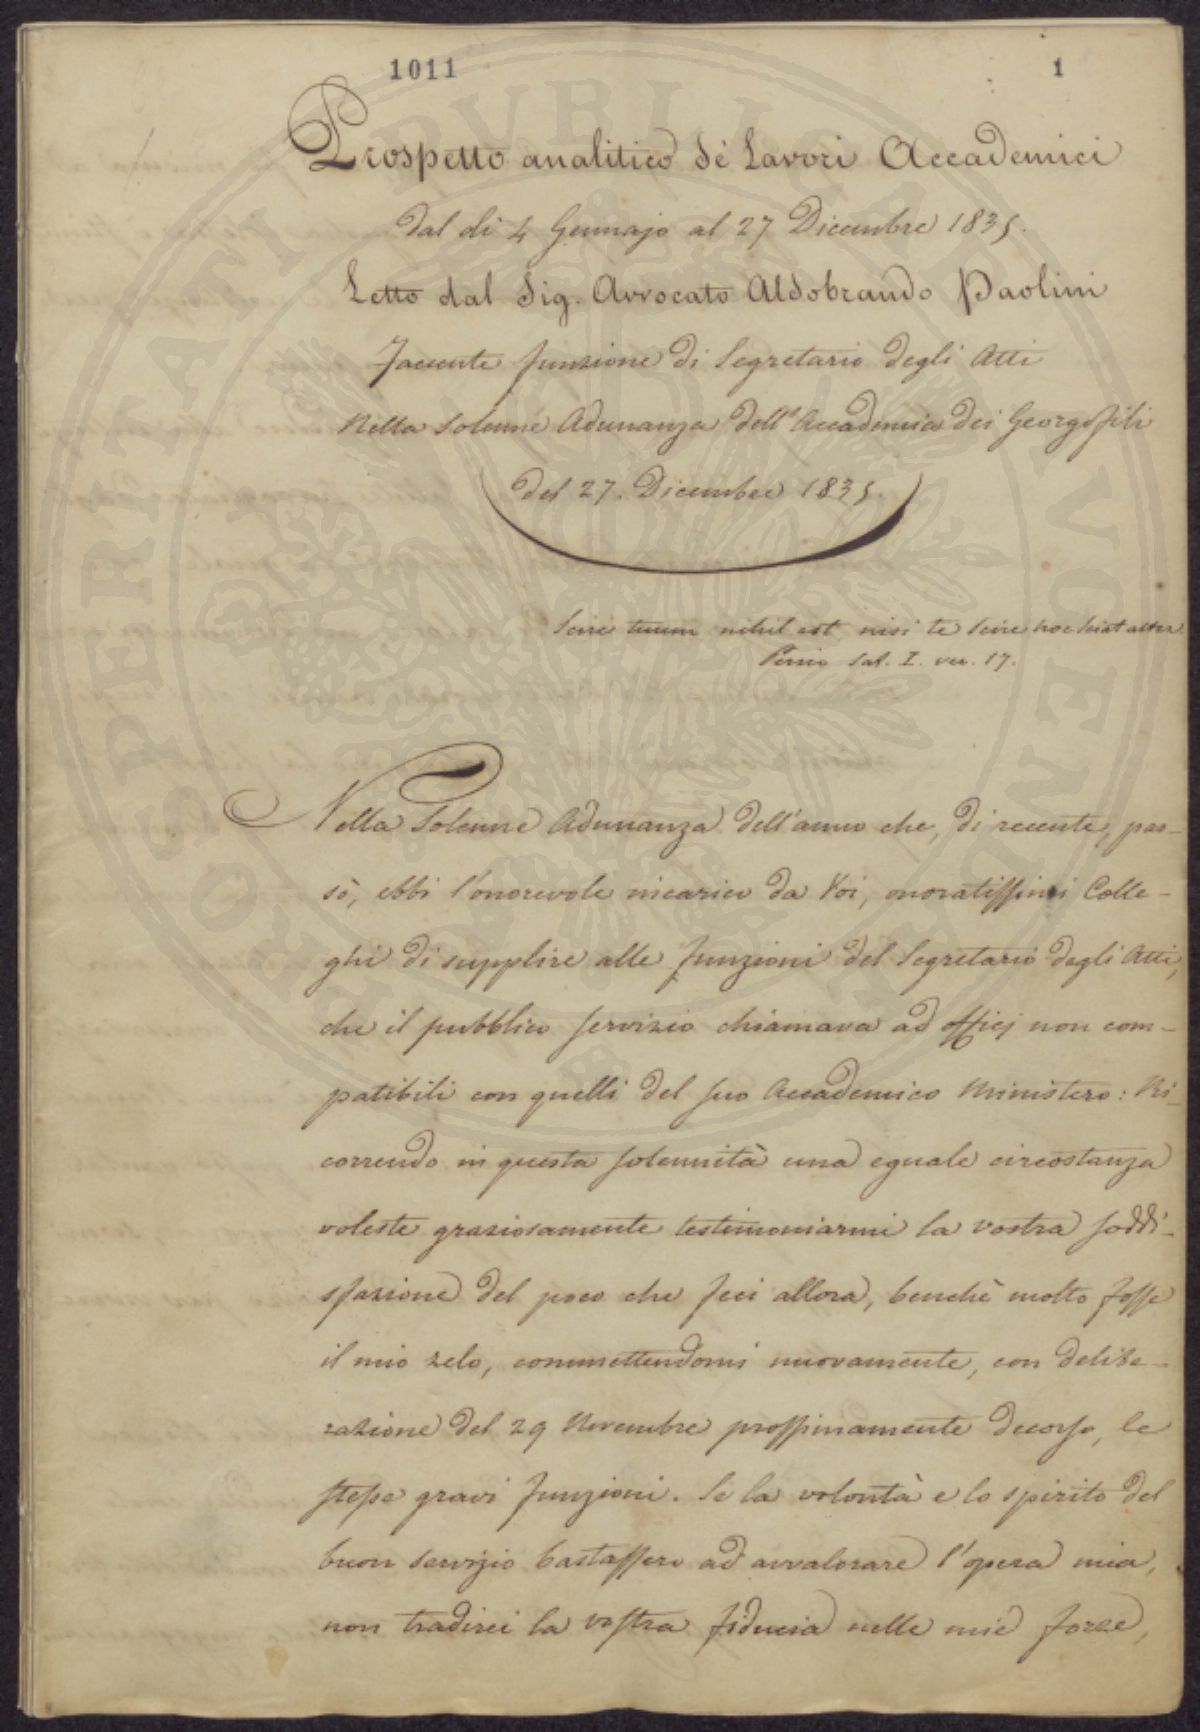 1011 1
Prospetto analitico dè Lavori Accademici
dal di 4 Gennajo al 27 Dicembre 1835.
Letto dal Sig. Avvocato Aldobrando Paolini
Facente funzione di Segretario degli Atti
Nella Solenne Adunanza dell'Accademia dei Georgofili
del 27. Dicembre 1835.
Scire tuum nihil est, nisi te scire hoc sciat alter
Persio Sat. I. ver. 17.
Nella Solenne Adunanza dell'anno che, di recente, pas-
sò, ebbi l'onorevole incarico da Voi, onoratissimi Colle-
ghi di supplire alle funzioni del Segretario degli Atti,
che il pubblico servizio chiamava ad officj non com-
patibili con quelli del suo Accademico Ministero: Ri-
correndo in questa solennità una eguale circostanza
voleste graziosamente testimoniarmi la vostra soddi-
sfazione del poco che feci allora, benchè molto fosse
il mio zelo, commettendomi nuovamente, con delibe-
razione del 29 Novembre prossimamente decorso, le
stesse gravi funzioni. Se la volontà e lo spirito del
buon servizio bastassero ad avvalorare l'opera mia,
non tradirei la vostra fiducia nelle mie forze,
PROSPERITATI PUBLICAE AUGENDAE